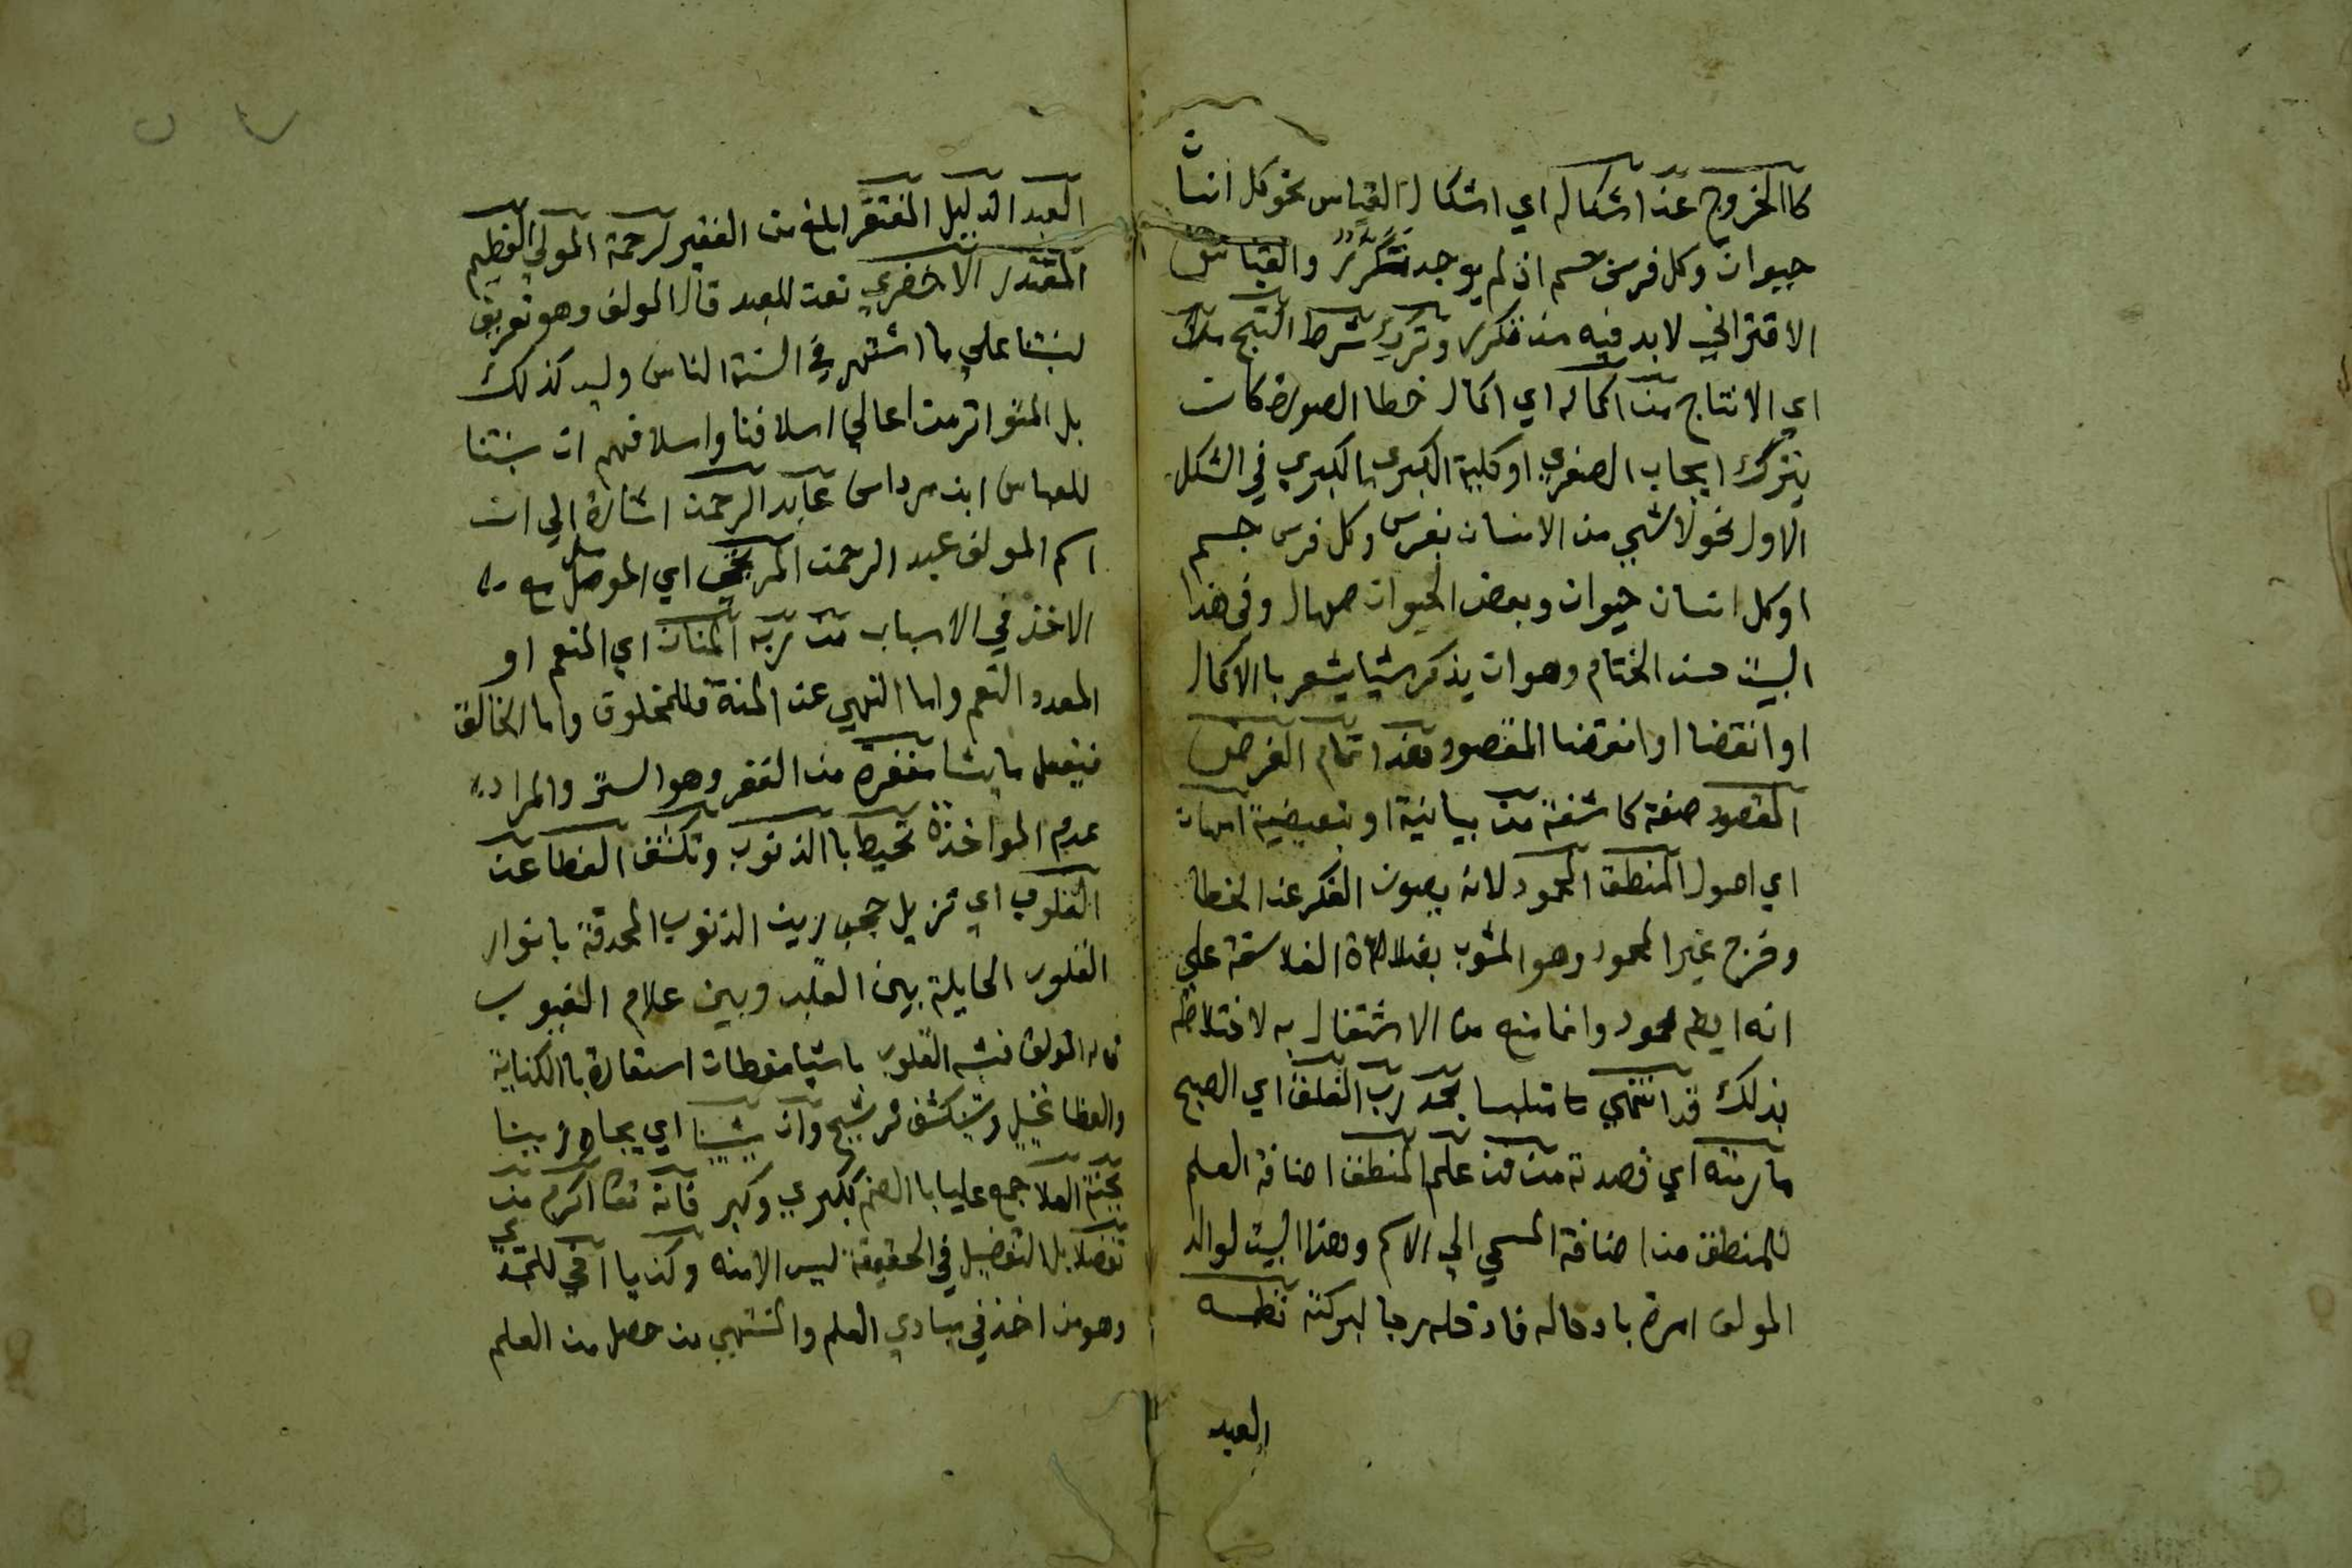 كالخروج عن اشكاله اي اشكال القياس نحو كل انسان
حيوان وكل فرس جسم اذ لم يوجد تكرر والقياس
الاقتراني لا بد فيه من تكرر وترك شرط النتج
اي الانتاج من اكماله اي اكمال خطا الصورة كان
يترك ايجاب الصغري او كلية الكبري الكبري في الشكل
الاول نحو لا شي من الانسان بفرس وكل فرس جسم
او كل انسان حيوان وبعض الحيوان صهال وفي هذا
البيت حسن الختام وهو ان يذكر شيا يشعر بالاكمال
او انقضا او انقضا المقصود هذا تمام الغرض
المقصود صفة كاشفة من بيانية او تبعيضية امهات
اي اصول المنطق المحمود لانه يصون الفكر عن الخطا
وخرج غير المحمود وهو المشوب بضلالاة الفلاسفة علي
انه ايضا محمود وانما منع من الاشتغال به لاختلاطه
بذلك قد انتهي متلبسا بحمد رب الفلق اي الصبح
ما رمته اي قصدته من فن علم المنطق اضافة العلم
للمنطق من اضافة المسمي الي الاسم وهذا البيت لوالد
المولف امره بادخاله فادخله رجا لبركته نظمه
العبد
العبد الذليل المفتقر ابلغ من الفقير لرحمة المولي العظيم
المقتدر الاخضري نعت للعبد قال المولف وهو تعريف
لنسبتنا علي ما اشتهر في السنة الناس وليس كذلك
بل المتواتر من اعالي اسلافنا واسلافهم ان نسبتنا
للعباس ابن مرداس عابد الرحمن اشارة الي ان
اسم المولف عبد الرحمن المرتجي اي المومل مع
الاخذ في الاسباب من ربه المنان اي المنعم او
المعدد النعم واما النهي عن المنة فللمخلوق واما الخالق
فيفعل ما يشا مغفرة من الغفر وهو الستر والمراد به
عدم المواخذة تحيط بالذنوب وتكشف الغطا عن
القلوب اي تزيل حجب رين الذنوب المحدقة بانوار
القلوب الحايلة بين القلب وبين علام الغيوب
قاله المولف فشبه القلوب باشيا مغطات استعارة بالكناية
والغطا تخييل وتنكشف ترشيح وان يثيبنا اي يجازينا
بجنة العلا جمع عليا بالضم ككبري وكبر فانه تعالي اكرم من
تفضلا بل التفضيل في الحقيقة ليس الا منه وكن يا اخي للمبتدي
وهو من اخذ في مبادي العلم والمنتهي من حصل من العلم